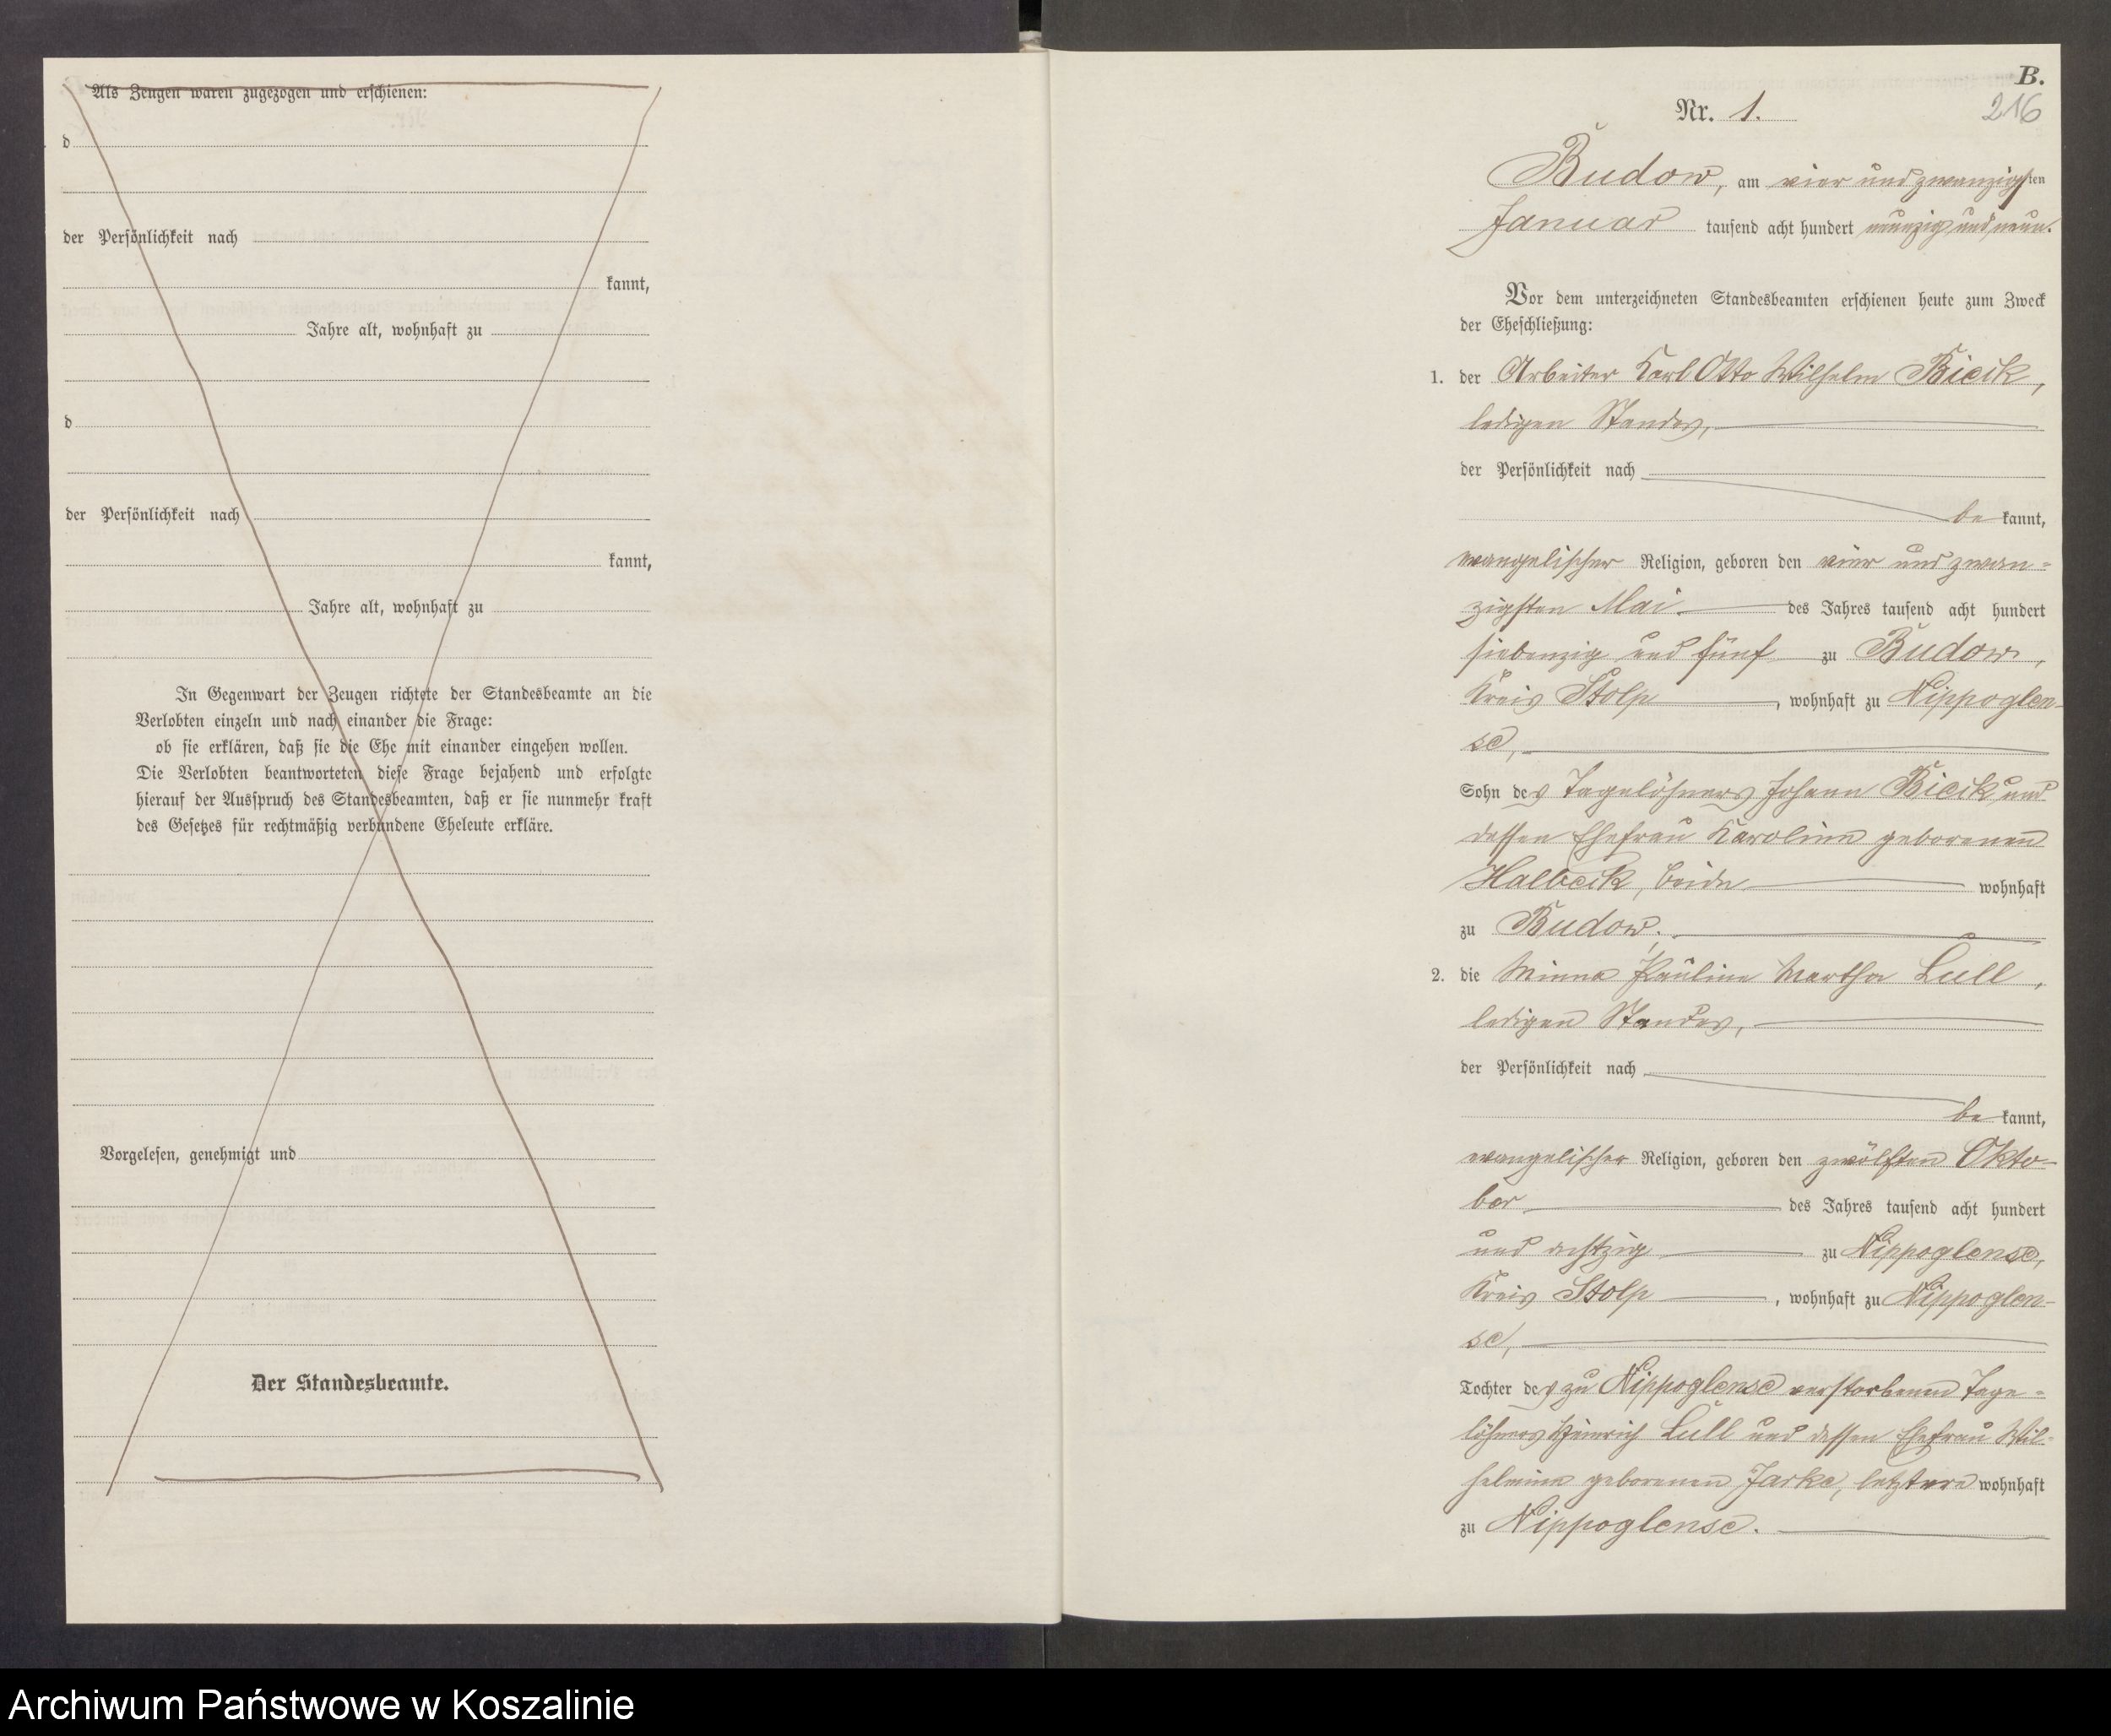 Als Zeugen waren zugezogen und erschienen:
d
der Persönlichkeit nach
kannt,
Jahre alt, wohnhaft zu
d
der Persönlichkeit nach
kannt,
Jahre alt, wohnhaft zu
In Gegenwart der Zeugen richtete der Standesbeamte an die
Verlobten einzeln und nach einander die Frage:
ob sie erklären, daß sie die Ehe mit einander eingehen wollen.
Die Verlobten beantworteten diese Frage bejahend und erfolgte
hierauf der Ausspruch des Standesbeamten, daß er sie nunmehr kraft
des Gesetzes für rechtmäßig verbundene Eheleute erkläre.
Vorgelesen, genehmigt und
Der Standesbeamte.
B.
Nr. 1.
216
Budow, am vier und zwanzigsten
Januar tausend acht hundert neunzig und neun.
Vor dem unterzeichneten Standesbeamten erschienen heute zum Zweck
der Eheschließung:
1. der Arbeiter Karl Otto Wilhelm Bicik,
ledigen Standes,
der Persönlichkeit nach
be kannt,
evangelischer Religion, geboren den vier und zwan-
zigsten Mai des Jahres tausend acht hundert
siebenzig und fünf zu Budow,
Kreis Stolp, wohnhaft zu Nippoglen-
se,
Sohn des Tagelöhners Johann Bicik und
dessen Ehefrau Karoline geborenen
Halbeik, beide wohnhaft
zu Budow.
2. die Minna Pauline Martha Lull,
ledigen Standes,
der Persönlichkeit nach
be kannt,
evangelischer Religion, geboren den zwölften Okto-
ber des Jahres tausend acht hundert
und achtzig zu Nippoglense,
Kreis Stolp, wohnhaft zu Nippoglen-
se,
Tochter des zu Nippoglense verstorbenen Tage-
löhners Heinrich Lüll und dessen Ehefrau Wil-
helmine geborenen Jarke, letztere wohnhaft
zu Nippoglense.
Archiwum Państwowe w Koszalinie